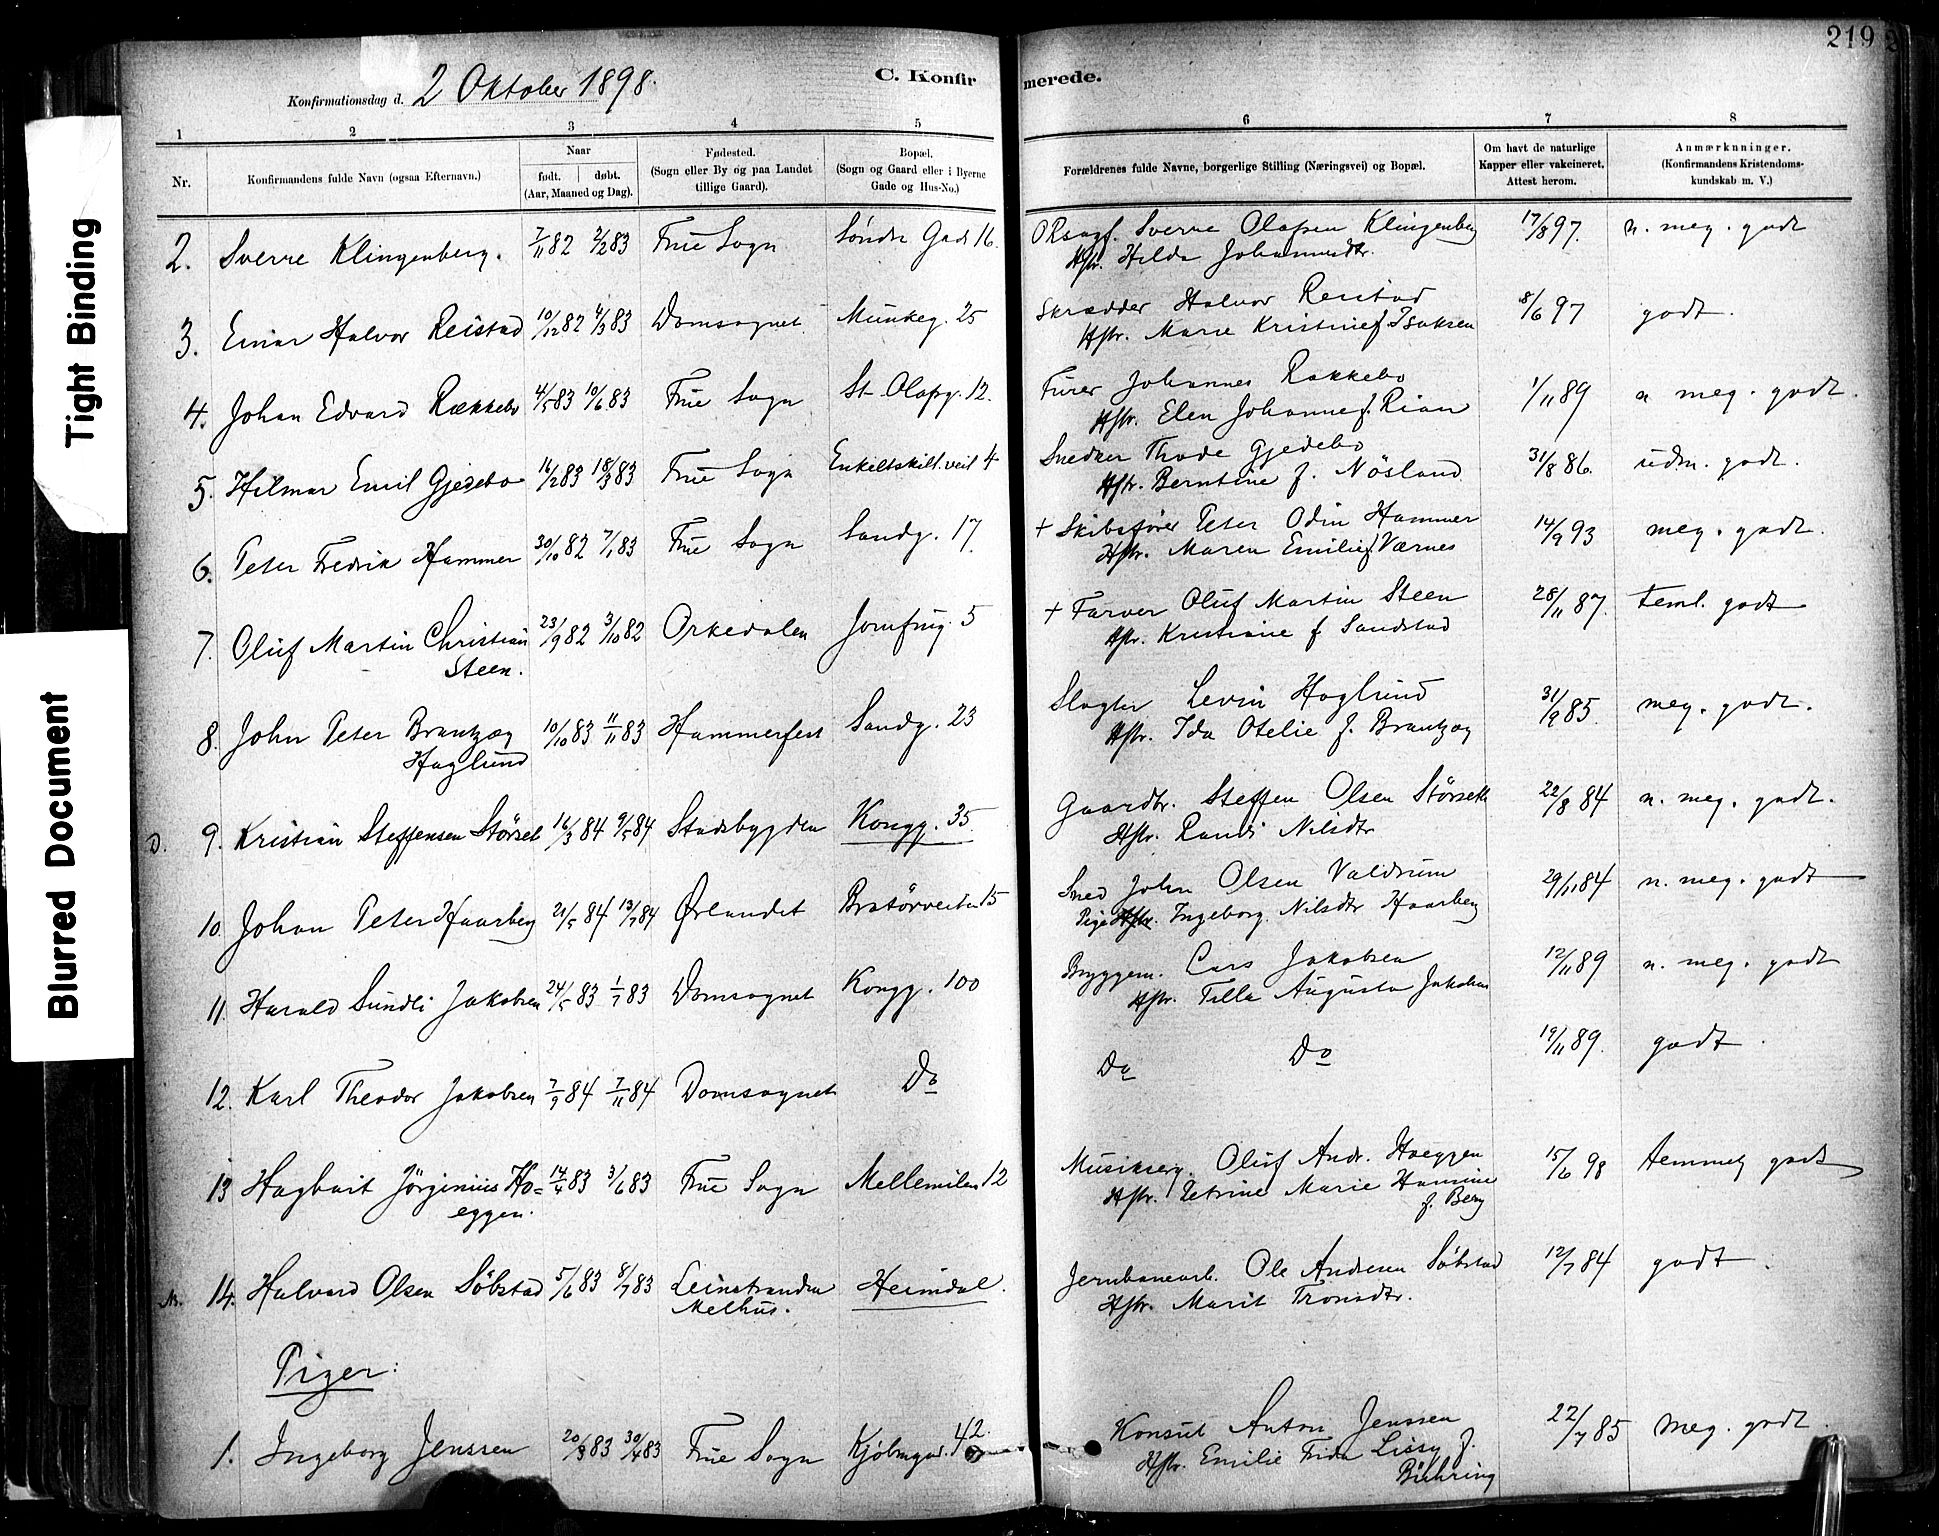 219
Tight Binding
Blurred Document
Konfirmationsdag d. 2 Oktober 1898.
C. Konfirmerede.
1 2 3 4 5 6 7 8
Nr.
Konfirmandens fulde Navn (ogsaa Efternavn.)
Naar
født. døbt.
(Aar, Maaned og Dag).
Fødested.
(Sogn eller By og paa Landet
tillige Gaard).
Bopæl.
(Sogn og Gaard eller i Byerne
Gade og Hus-No.)
Forældrenes fulde Navne, borgerlige Stilling (Næringsvei) og Bopæl.
Om havt de naturlige
Kapper eller vakcineret.
Attest herom.
Anmærkninger.
(Konfirmandens Kristendoms-
kundskab m. V.)
2. Sverre Klingenberg. 7/11 82 2/2 83 Frue Sogn Søndre Gade 16. ORsagf. Sverre Olafsen Klingenberg 17/8 97. n. meg. godt
Hstr. Hilda Johannesdtr.
3. Einar Halvor Reistad 10/12 82 4/3 83 Domsognet Munkeg. 25 Skrædder Halvor Reistad 8/6 97 godt.
Hstr. Marie Kristine f. Isaksen
4. Johan Edvard Rækkebo 4/5 83 10/6 83 Frue Sogn St Olafsg. 12. Furer Johannes Rakkebo 1/11 89 n meg. godt.
Hstr. Elen Johanne f. Rian
5. Hilmar Emil Gjedebo 16/2 83 18/3 83 Frue Sogn Enkeltskill. veit 4 Snedker Thode Gjedebo 31/8 86. udm. godt.
Hstr. Berntine f. Nösland
6. Peter Fredrik Hammer 30/10 82 7/1 83 Frue Sogn Sandg. 17. + Skibsfører Peter Odin Hammer 14/9 93 meg. godt.
Hstr. Maren Emilie f. Værnes
7. Oluf Martin Christian 23/9 82 3/10 82 Orkedalen Jomfrug. 5 + Farver Oluf Martin Steen 28/11 87. teml. godt
Steen. Hstr. Kristiane f Sandstad
8. John Peter Brantzæg 10/10 83 11/11 83 Hammerfest Sandg. 23 Slagter Levin Hoglund 31/9 85. meg. godt.
Haglund Hstr. Ida Otelie f. Brantzæg
D. 9. Kristian Steffensen Störset 16/3 84 9/5 84 Stadsbygden Kongg. 35. Gaardbr. Steffen Olsen Störseth 22/8 84 n. meg. godt.
Hstr. Randi Nilsdtr
10. Johan Peter Haarberg 21/5 84 13/7 84 Ørlandet Bratörveiten 15 Sned John Olsen Valdrum 29/11 84 n. meg. godt
Pige Ingeborg Nilsdtr Haarberg
11. Harald Sundli Jakobsen 24/5 83 1/7 83 Domsognet Kongg. 100 Bryggem. Lars Jakobsen 12/11 89 n. meg. godt
Hstr. Tilla Augusta Jakobsen
12. Karl Theodor Jakobsen 7/9 84 7/11 84 Domsognet Do Do Do 19/11 89. godt.
13 Hagbart Jörginius Ho= 14/4 83 3/6 83 Frue Sogn Mellemilen 12 Musikserg. Oluf Andr. Hoeggen 15/6 98 temmel godt
eggen. Hstr. Petrine Marie Hamine
f. Berg
14. Halvard Olsen Söbstad 5/6 83 8/7 83 Leinstranden Heimdal. Jernbanearb. Ole Andersen Söbstad 12/7 84 godt.
Melhus. Hstr. Marit Tronsdtr.
Piger:
1. Ingeborg Jenssen 20/3 83 30/4 83 Frue Sogn Kjöbmgad. 42. Konsul Anton Jenssen 22/7 85 meg. godt.
Hstr. Emilie Frida Lissy f.
Bühring